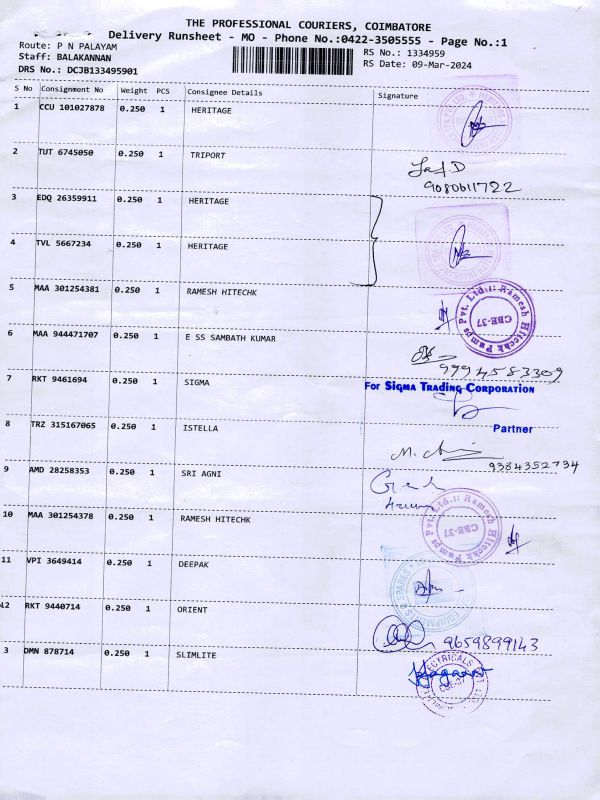 THE PROFESSIONAL COURIERS, COIMBATORE
Delivery Runsheet - MO - Phone No.:0422-3505555 - Page No.:1
Route: P N PALAYAM
RS No.: 1334959
Staff: BALAKANNAN
RS Date: 09-Mar-2024
DRS No.: DCJB133495901
S No Consignment No Weight PCS Consignee Details Signature
1 CCU 101027878 0.250 1 HERITAGE
2 TUT 6745050 0.250 1 TRIPORT
9080611722
3 EDQ 26359911 0.250 1 HERITAGE
4 TVL 5667234 0.250 1 HERITAGE
5 MAA 301254381 0.250 1 RAMESH HITECHK
Pvt. Ltd.: Ramesh Hitechk Pumps
CBE-37
6 MAA 944471707 0.250 1 E SS SAMBATH KUMAR
9994583309
7 RKT 9461694 0.250 1 SIGMA
For SIGMA TRADING CORPORATION
Partner
8 TRZ 315167065 0.250 1 ISTELLA
9384352734
9 AMD 28258353 0.250 1 SRI AGNI
10 MAA 301254378 0.250 1 RAMESH HITECHK
Pvt. Ltd.: Ramesh Hitechk Pumps
CBE-37
11 VPI 3649414 0.250 1 DEEPAK
12 RKT 9440714 0.250 1 ORIENT
9659899143
3 DMN 878714 0.250 1 SLIMLITE